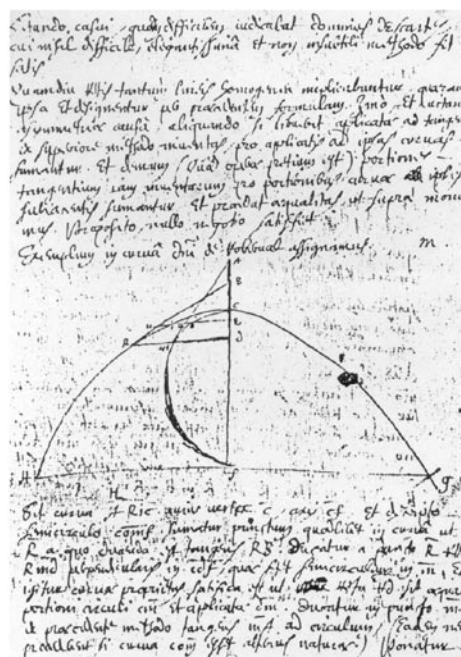 casui, quem difficilem iudicabat dominus Descartes
cui nihil difficile, elegantissima et non inutili methodo fit
satis.
Quamdiu rectis tantum lineis homogenea implicabuntur, quaerantur
ipsa et designentur per praecedentem formulam. Imo et
asymmetriae causa, aliquando si libuerit applicatae ad tangentes
ex superiore methodo inventas pro applicatis ad ipsas curvas
sumantur. Et demum (quod operae pretium est) portiones
tangentium iam inventarum pro portionibus curvae ipsis
subiacentis sumantur, et procedat aequalitas ut supra monui
mus. Proposito nullo negotio satisfiet.
Exemplum in curva Dni de Roberval assignamus.
m
B
C
E
D
R
F
H
g
H
Sit curva H R I C cuius vertex C, axis CF. Et descripto
semicirculo sumatur punctum quodlibet in curva ut
R a quo ducenda est tangens RB. Ducatur a puncto R
RMD perpendicularis in CDF quae secet semicirculum in M,
igitur curvae proprietas specifica est ut recta RD sit aequalis
portioni circuli CM et applicatae DM. Ducatur in puncto M
ex praecedente methodo tangens ad circulum, Eadem
procederent si curva COM esset alterius naturae. Ponatur